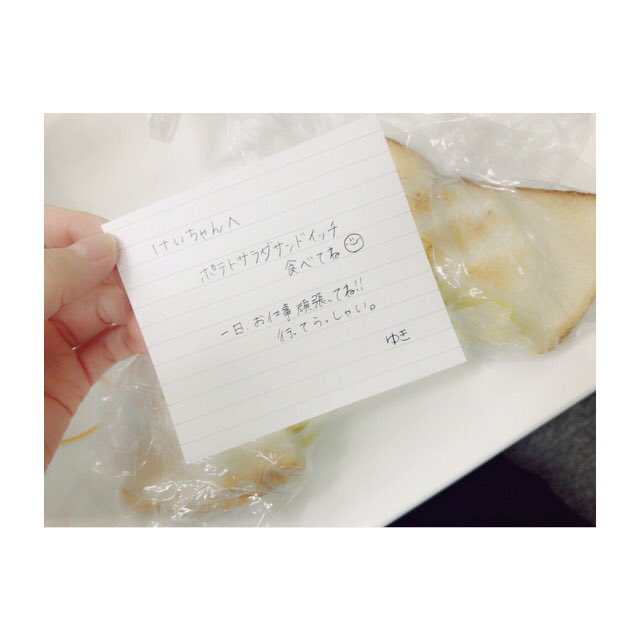 けいちゃんへ
ポテトサラダサンドイッチ
食べてね
一日、お仕事頑張ってね!!
行ってらっしゃい。
ゆき